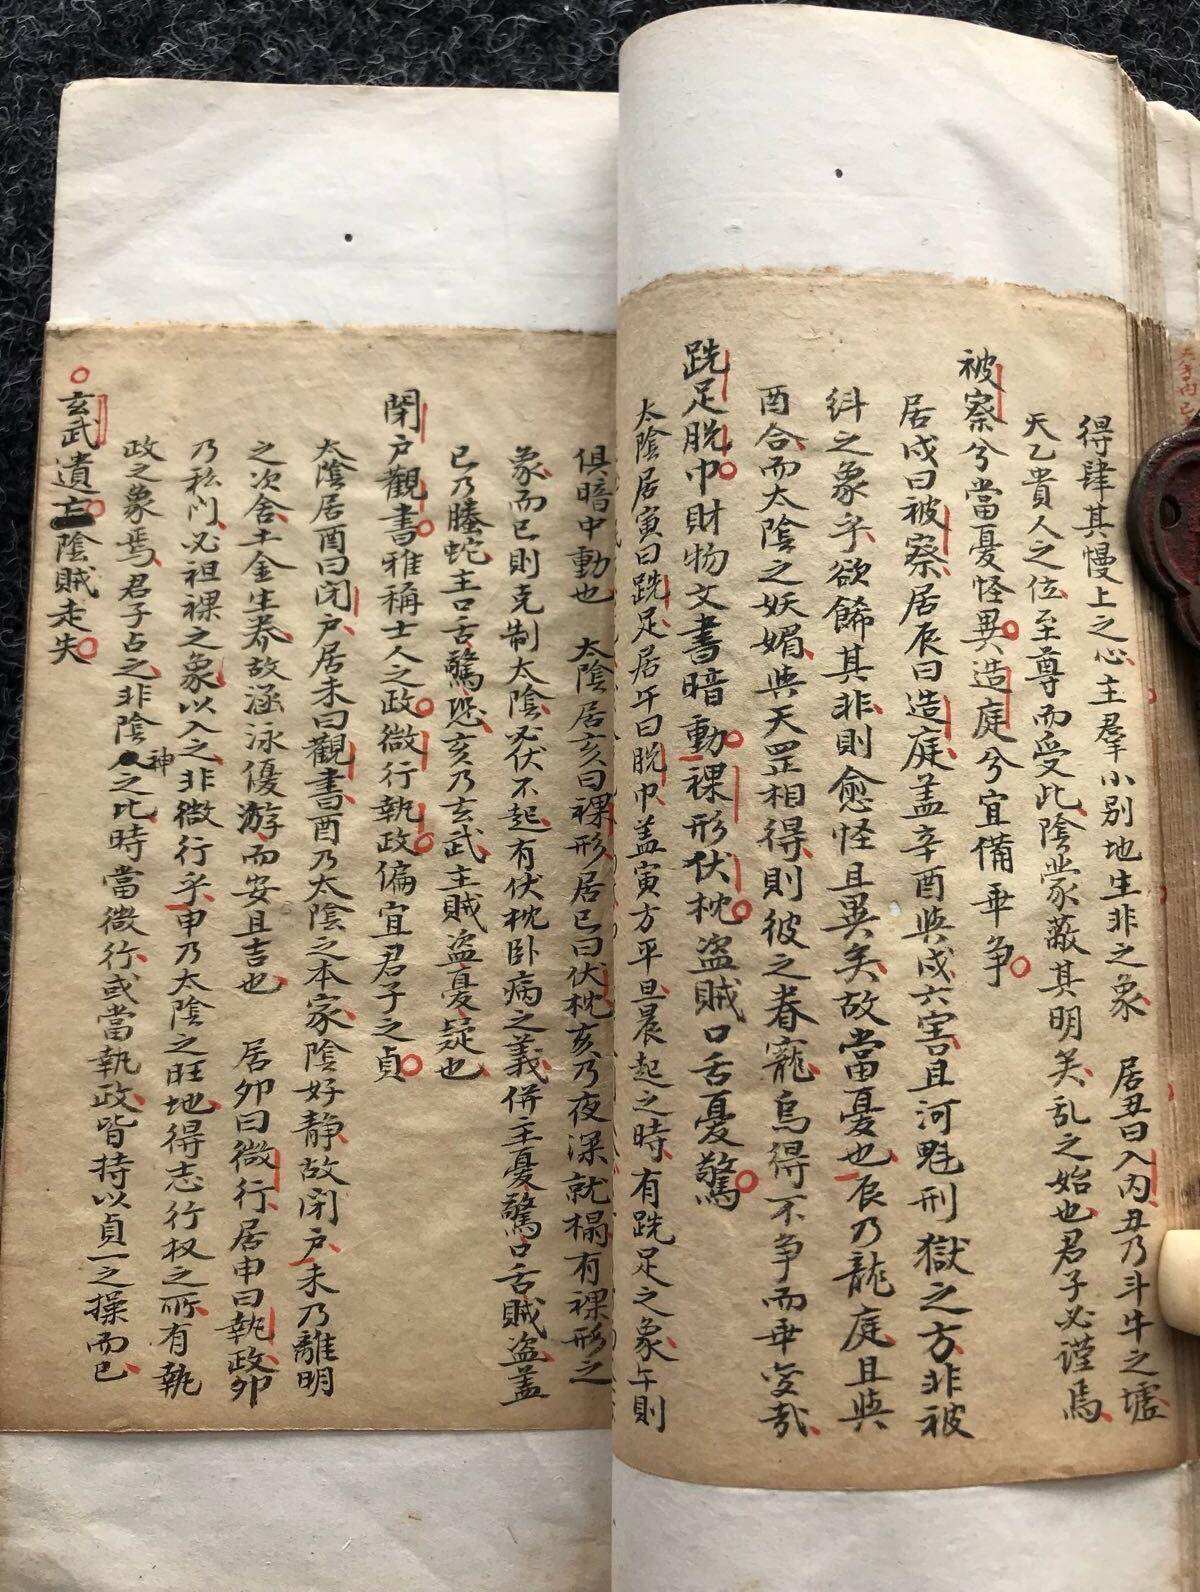 得肆其慢上之心主羣小别地生非之象　居丑曰入内丑乃斗牛之墟
天乙貴人之位至尊而受此陰蒙蔽其明矣乱之始也君子必谨焉
被察兮當憂怪異造庭兮宜備垂争
居戌曰被察居辰曰造庭盖辛酉與戌六害且河魁刑獄之方非被
糾之象乎欲餙其非則愈怪且異矣故當憂也辰乃龍庭且與
酉合而太陰之妖媚與天罡相得則彼之眷寵烏得不争而垂哉
跣足脱巾財物文書暗動裸形伏枕盗賊口舌憂驚
太陰居寅曰跣足居午曰脱巾盖寅方平旦晨起之時有跣足之象午則
俱暗中動也　太陰居亥曰裸形居巳曰伏枕亥乃夜深就榻有裸形之
象而巳則克制太陰必伏不起有伏枕卧病之義併主憂驚口舌賊盗盖
巳乃螣蛇主口舌驚恐亥乃玄武主賊盗憂疑也
閉户觀書雅稱士人之政微行執政偏宜君子之貞
太陰居酉曰闭户居未曰觀書酉乃太陰之本家陰好静故闭户未乃離明
之次舍土金生养故涵泳優游而安且吉也　居卯曰微行居申曰執政卯
乃私门必袒裸之象以入之非微行乎申乃太陰之旺地得志行权之所有執
政之象焉君子占之非陰神之比時當微行或當執政皆持以貞一之操而已
玄武遺亡陰賊走失